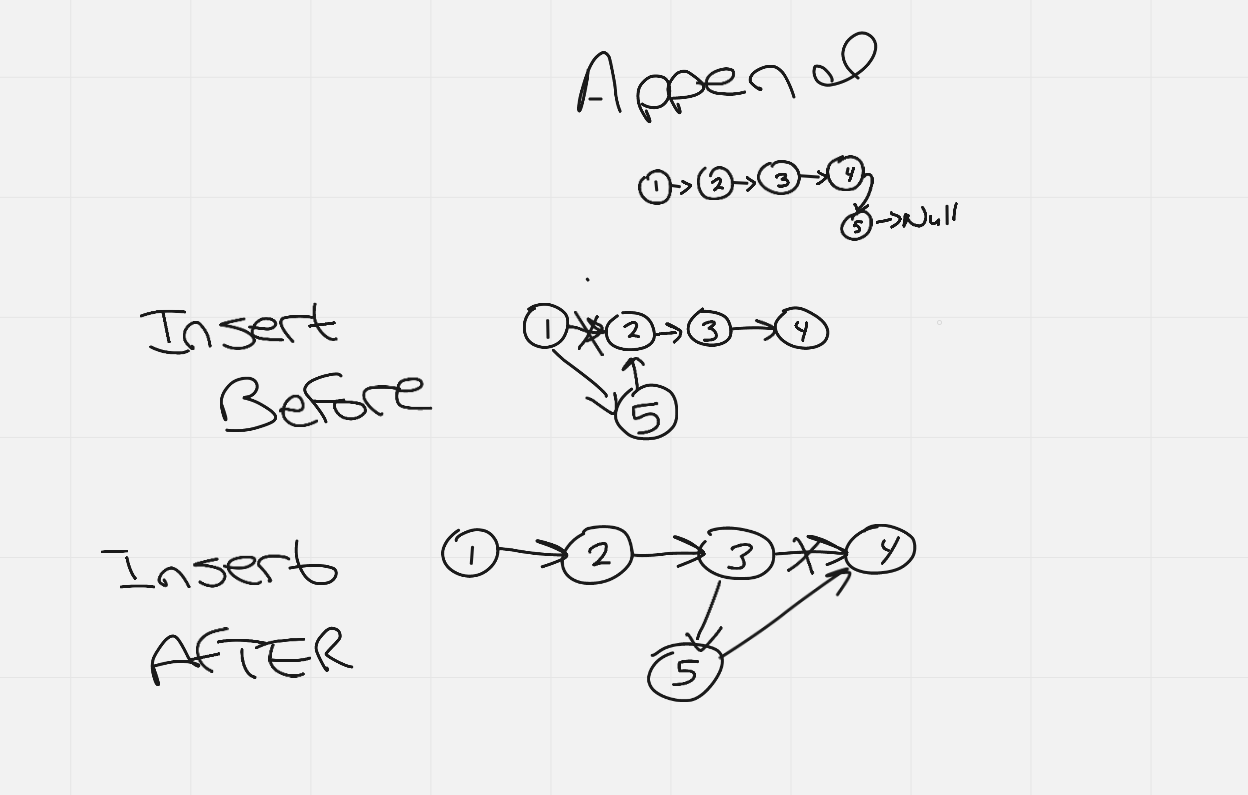 Append
1 → 2 → 3 → 4
5 → Null
Insert
Before
1 → 2 → 3 → 4
5
Insert
AFTER
1 → 2 → 3 → 4
5